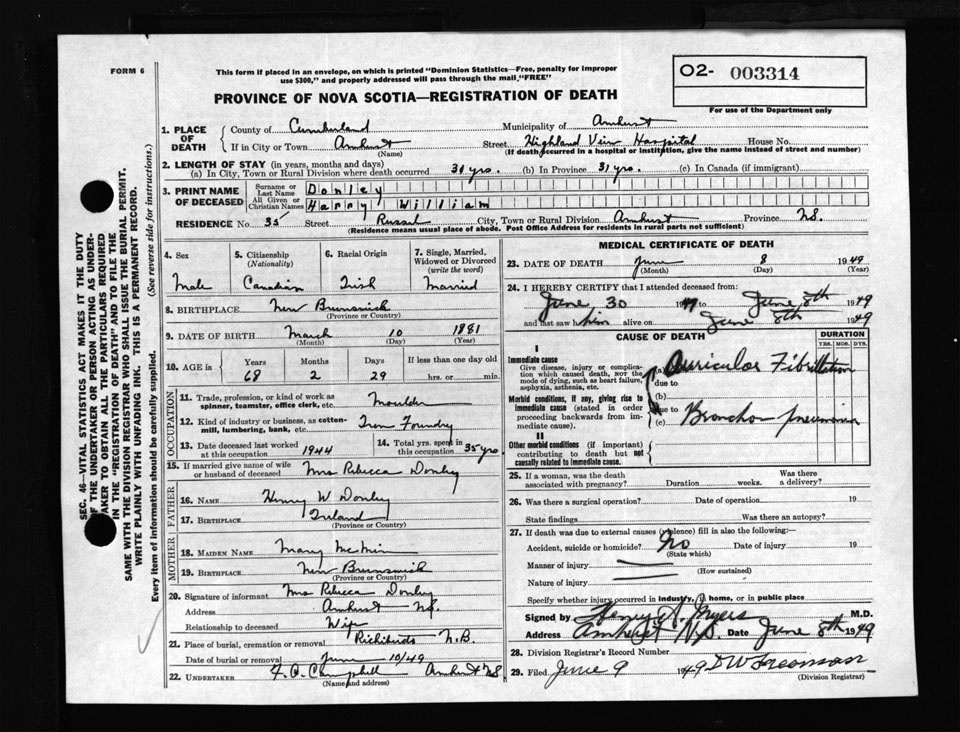 FORM 6
This form if placed in an envelope, on which is printed "Dominion Statistics—Free, penalty for improper
use $300," and properly addressed will pass through the mail, "FREE"
O2- 003314
For use of the Department only
PROVINCE OF NOVA SCOTIA—REGISTRATION OF DEATH
SEC. 46—VITAL STATISTICS ACT MAKES IT THE DUTY
OF THE UNDERTAKER OR PERSON ACTING AS UNDER-
TAKER TO OBTAIN ALL THE PARTICULARS REQUIRED
IN THE "REGISTRATION OF DEATH" AND TO FILE THE
SAME WITH THE DIVISION REGISTRAR WHO SHALL ISSUE THE BURIAL PERMIT.
WRITE PLAINLY WITH UNFADING INK. THIS IS A PERMANENT RECORD.
Every item of information should be carefully supplied. (See reverse side for instructions.)
1. PLACE OF DEATH
County of Cumberland Municipality of Amherst
If in City or Town Amherst Street Highland View Hospital House No.
(Name) (If death occurred in a hospital or institution, give the name instead of street and number)
2. LENGTH OF STAY (in years, months and days)
(a) In City, Town or Rural Division where death occurred 31 yrs. (b) In Province 31 yrs. (c) In Canada (if immigrant)
3. PRINT NAME OF DECEASED
Surname or Last Name Donley
All Given or Christian Names Harry William
RESIDENCE No 35 Street Russel City, Town or Rural Division Amherst Province N.S.
(Residence means usual place of abode. Post Office Address for residents in rural parts not sufficient)
4. Sex Male
5. Citizenship (Nationality) Canadian
6. Racial Origin Irish
7. Single, Married, Widowed or Divorced (write the word) Married
8. BIRTHPLACE New Brunswick
(Province or Country)
9. DATE OF BIRTH March 10 1881
(Month) (Day) (Year)
10. AGE in Years 68 Months 2 Days 29 If less than one day old hrs. or min.
OCCUPATION
11. Trade, profession, or kind of work as spinner, teamster, office clerk, etc. Moulder
12. Kind of industry or business, as cotton-mill, lumbering, bank, etc. Iron Foundry
13. Date deceased last worked at this occupation 1944
14. Total yrs. spent in this occupation 35 yrs.
15. If married give name of wife or husband of deceased Mrs Rebecca Donley
FATHER
16. NAME Henry W Donley
17. BIRTHPLACE Ireland
(Province or Country)
MOTHER
18. MAIDEN NAME Mary
19. BIRTHPLACE New Brunswick
(Province or Country)
20. Signature of informant Mrs Rebecca Donley
Address Amherst N.S.
Relationship to deceased Wife
21. Place of burial, cremation or removal N.B.
Date of burial or removal June 10/49
22. UNDERTAKER Campbell Amherst N.S
(Name and address)
MEDICAL CERTIFICATE OF DEATH
23. DATE OF DEATH June 8 1949
(Month) (Day) (Year)
24. I HEREBY CERTIFY that I attended deceased from:
June 30 19 to June 8th 1949
and last saw him alive on June 8th 1949
CAUSE OF DEATH
DURATION
YRS. MOS. DYS.
I
Immediate cause
Give disease, injury or complication which caused death, nor the mode of dying, such as heart failure, asphyxia, asthenia, etc.
(a) Auricular Fibrillation
due to
Morbid conditions, if any, giving rise to immediate cause (stated in order proceeding backwards from immediate cause).
(b)
due to
(c) Broncho pneumonia
II
Other morbid conditions (if important) contributing to death but not causally related to immediate cause.
25. If a woman, was the death associated with pregnancy? Duration weeks. Was there a delivery?
26. Was there a surgical operation? Date of operation 19
State findings Was there an autopsy?
27. If death was due to external causes (violence) fill in also the following:
Accident, suicide or homicide? No Date of injury 19
(State which)
Manner of injury
(How sustained)
Nature of injury
Specify whether injury occurred in industry, in home, or in public place
Signed by Henry A. Myers M.D.
Address Amherst N.S. Date June 8th 1949
28. Division Registrar's Record Number
29. Filed June 9 1949 Freeman
(Division Registrar)